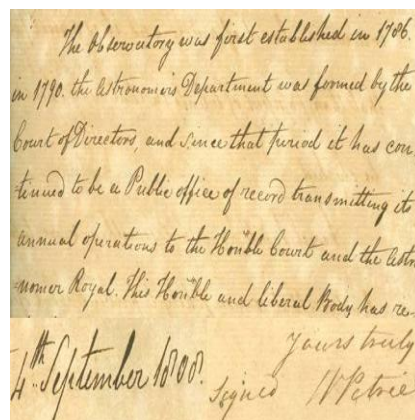 The Observatory was first established in 1786.
in 1790. the Astronomers Department was formed by the
Court of Directors, and since that period it has con
tinued to be a Public office of record transmitting its
annual operations to the Honble Court and the Astro
nomer Royal. This Honble and liberal Body has re-
Yours truly
4th September 1808.
Signed W Petrie